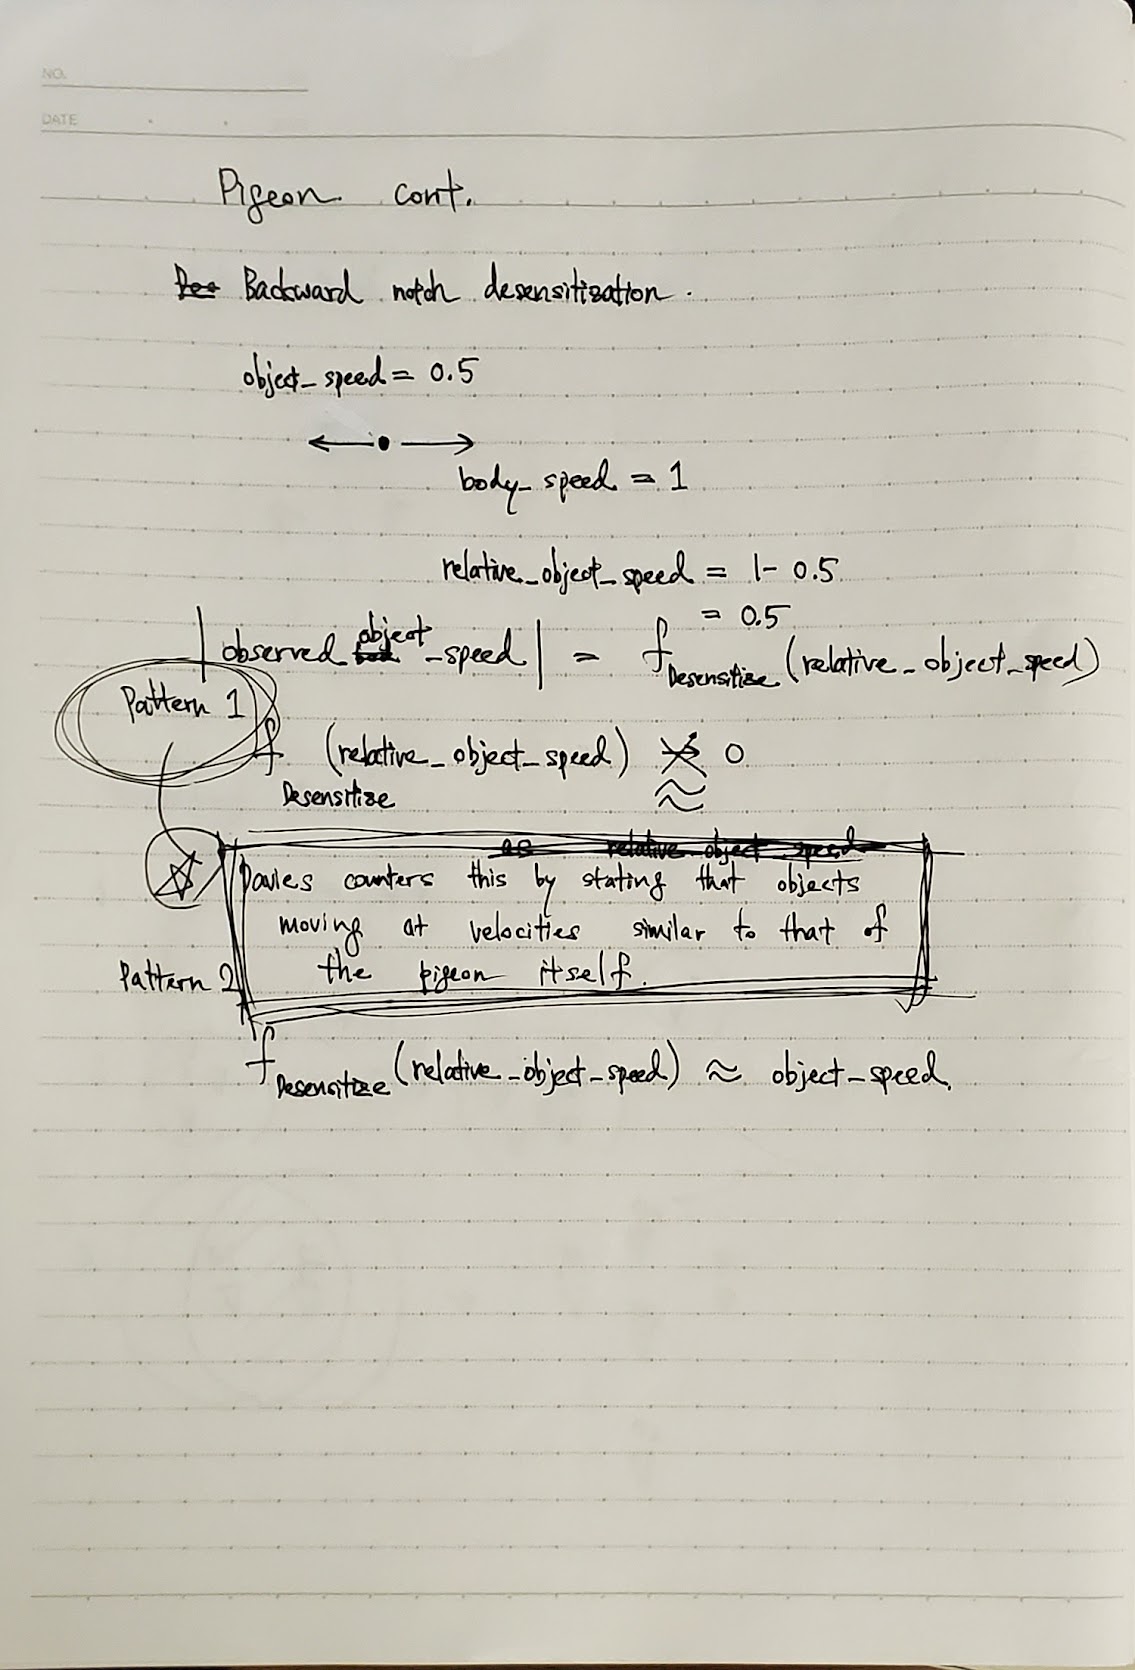 NO.
DATE
Pigeon cont.
Backward notch desensitization.
object_speed = 0.5
body_speed = 1
relative_object_speed = 1 - 0.5
= 0.5
| observed object_speed | = f Desensitize (relative_object_speed)
Pattern 1
f Desensitize (relative_object_speed) ≈ 0
as relative object speed
Davies counters this by stating that objects
moving at velocities similar to that of
the pigeon itself.
Pattern 2
f Desensitize (relative_object_speed) ≈ object_speed.